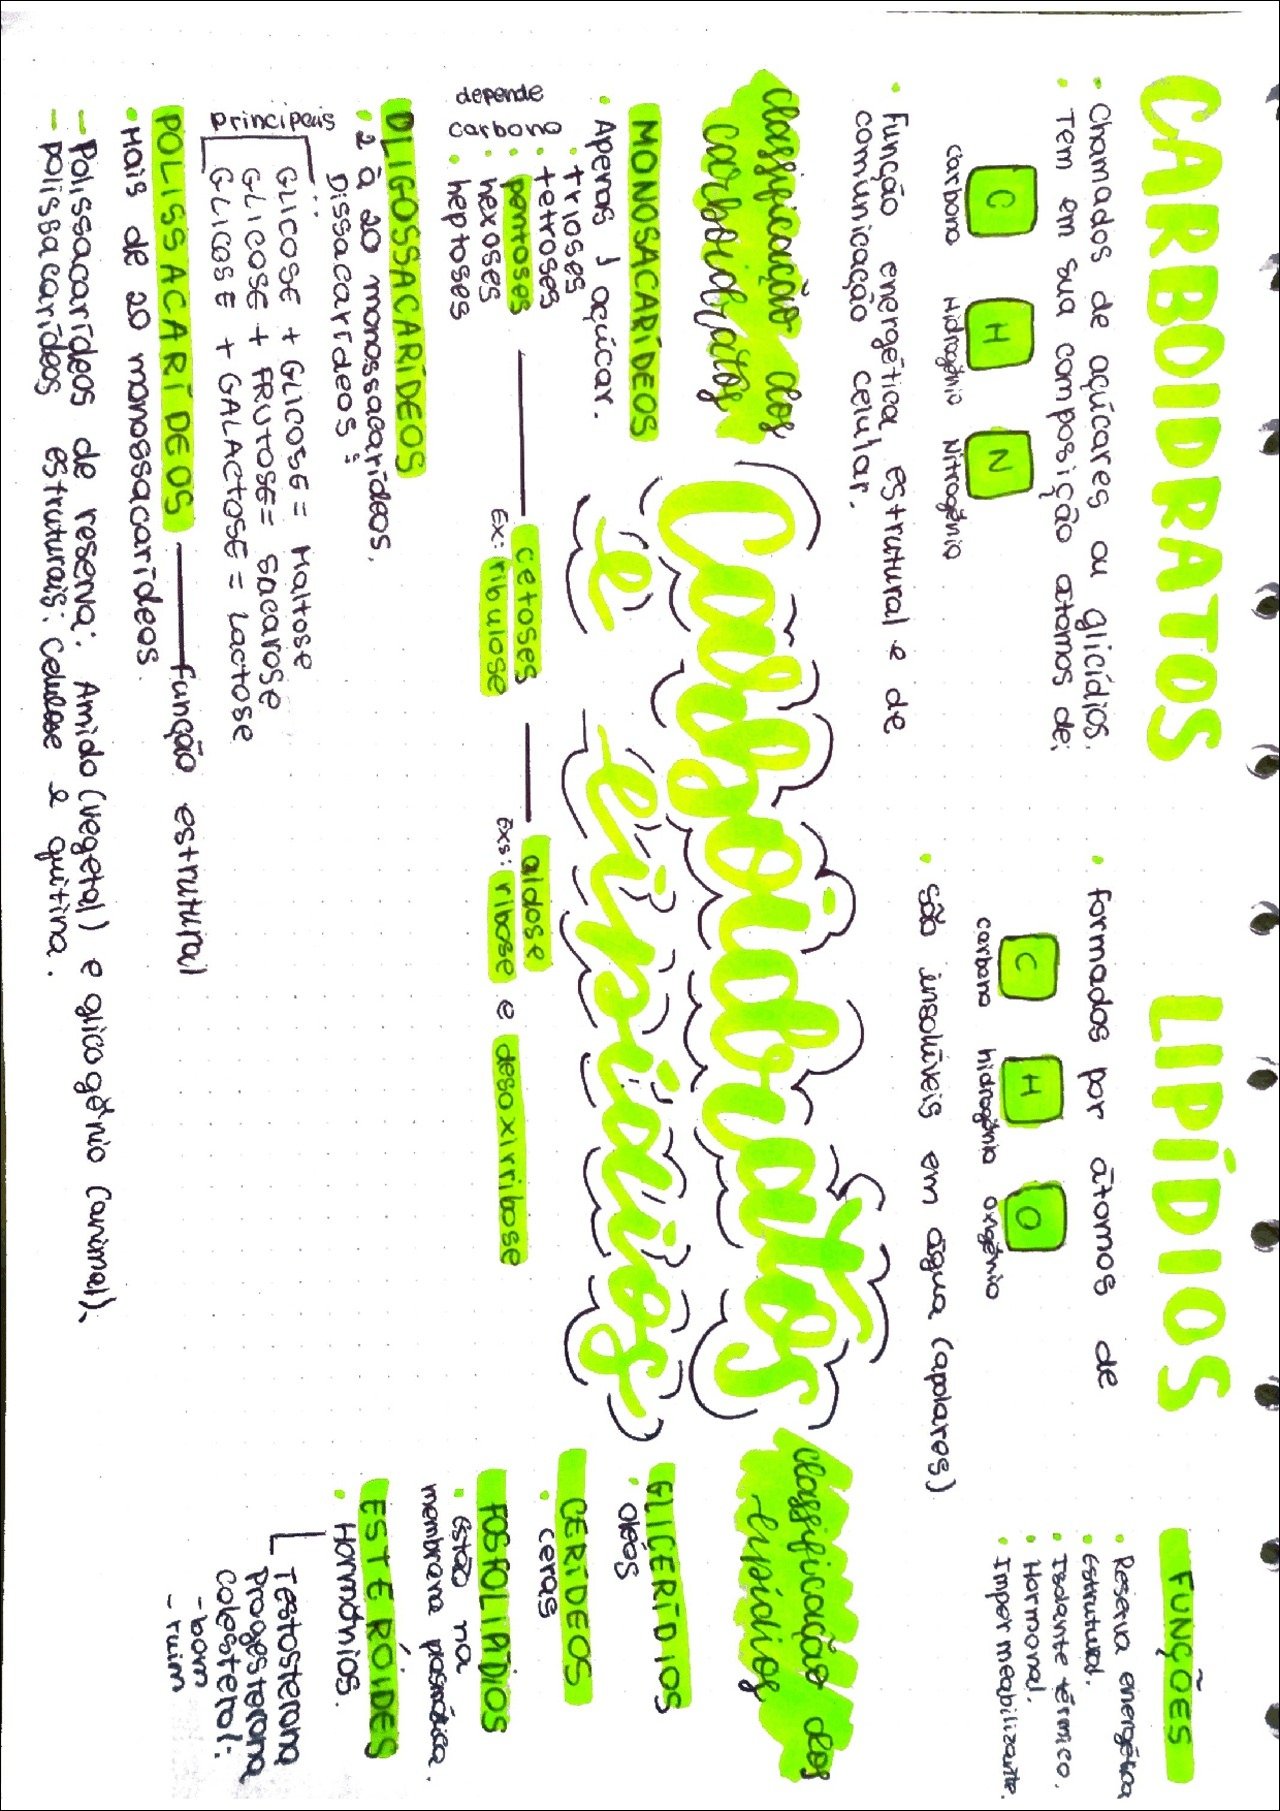 CARBOIDRATOS
• Chamados de açúcares ou glicídios.
• Tem em sua composição átomos de:
C H N
carbono Hidrogênio Nitrogênio
• Função energética, estrutural e de
comunicação celular.
LIPÍDIOS
• formados por átomos de
C H O
carbono hidrogênio oxigênio
• são insolúveis em água (apolares)
FUNÇÕES
• Reserva energética
• Estrutural.
• Isolante térmico.
• Hormonal.
• Impermeabilizante.
Carboidratos
e lipídios
classificação dos
carboidratos
MONOSACARÍDEOS
• Apenas 1 açúcar.
depende
carbono
• trioses
• tetroses
• pentoses
• hexoses
• heptoses
cetoses
Ex: ribulose
aldose
Exs: ribose e desoxirribose
OLIGOSSACARÍDEOS
• 2 à 20 monossacarídeos.
Dissacarídeos:
principais
GLICOSE + GLICOSE = Maltose
GLICOSE + FRUTOSE = SACAROSE
GLICOSE + GALACTOSE = Lactose
POLISSACARÍDEOS — função estrutural
• Mais de 20 monossacarídeos.
- Polissacarídeos de reserva: Amido (vegetal) e glicogênio (animal).
- polissacarídeos estruturais: celulose e quitina.
classificação dos
lipídios
GLICERÍDIOS
• oleós
CERÍDEOS
• ceras
FOSFOLIADIOS
• Estão na
membrana plasmática.
ESTERÓIDES
• Hormônios.
Testosterona
Progesterona
colesterol:
- bom
- ruim